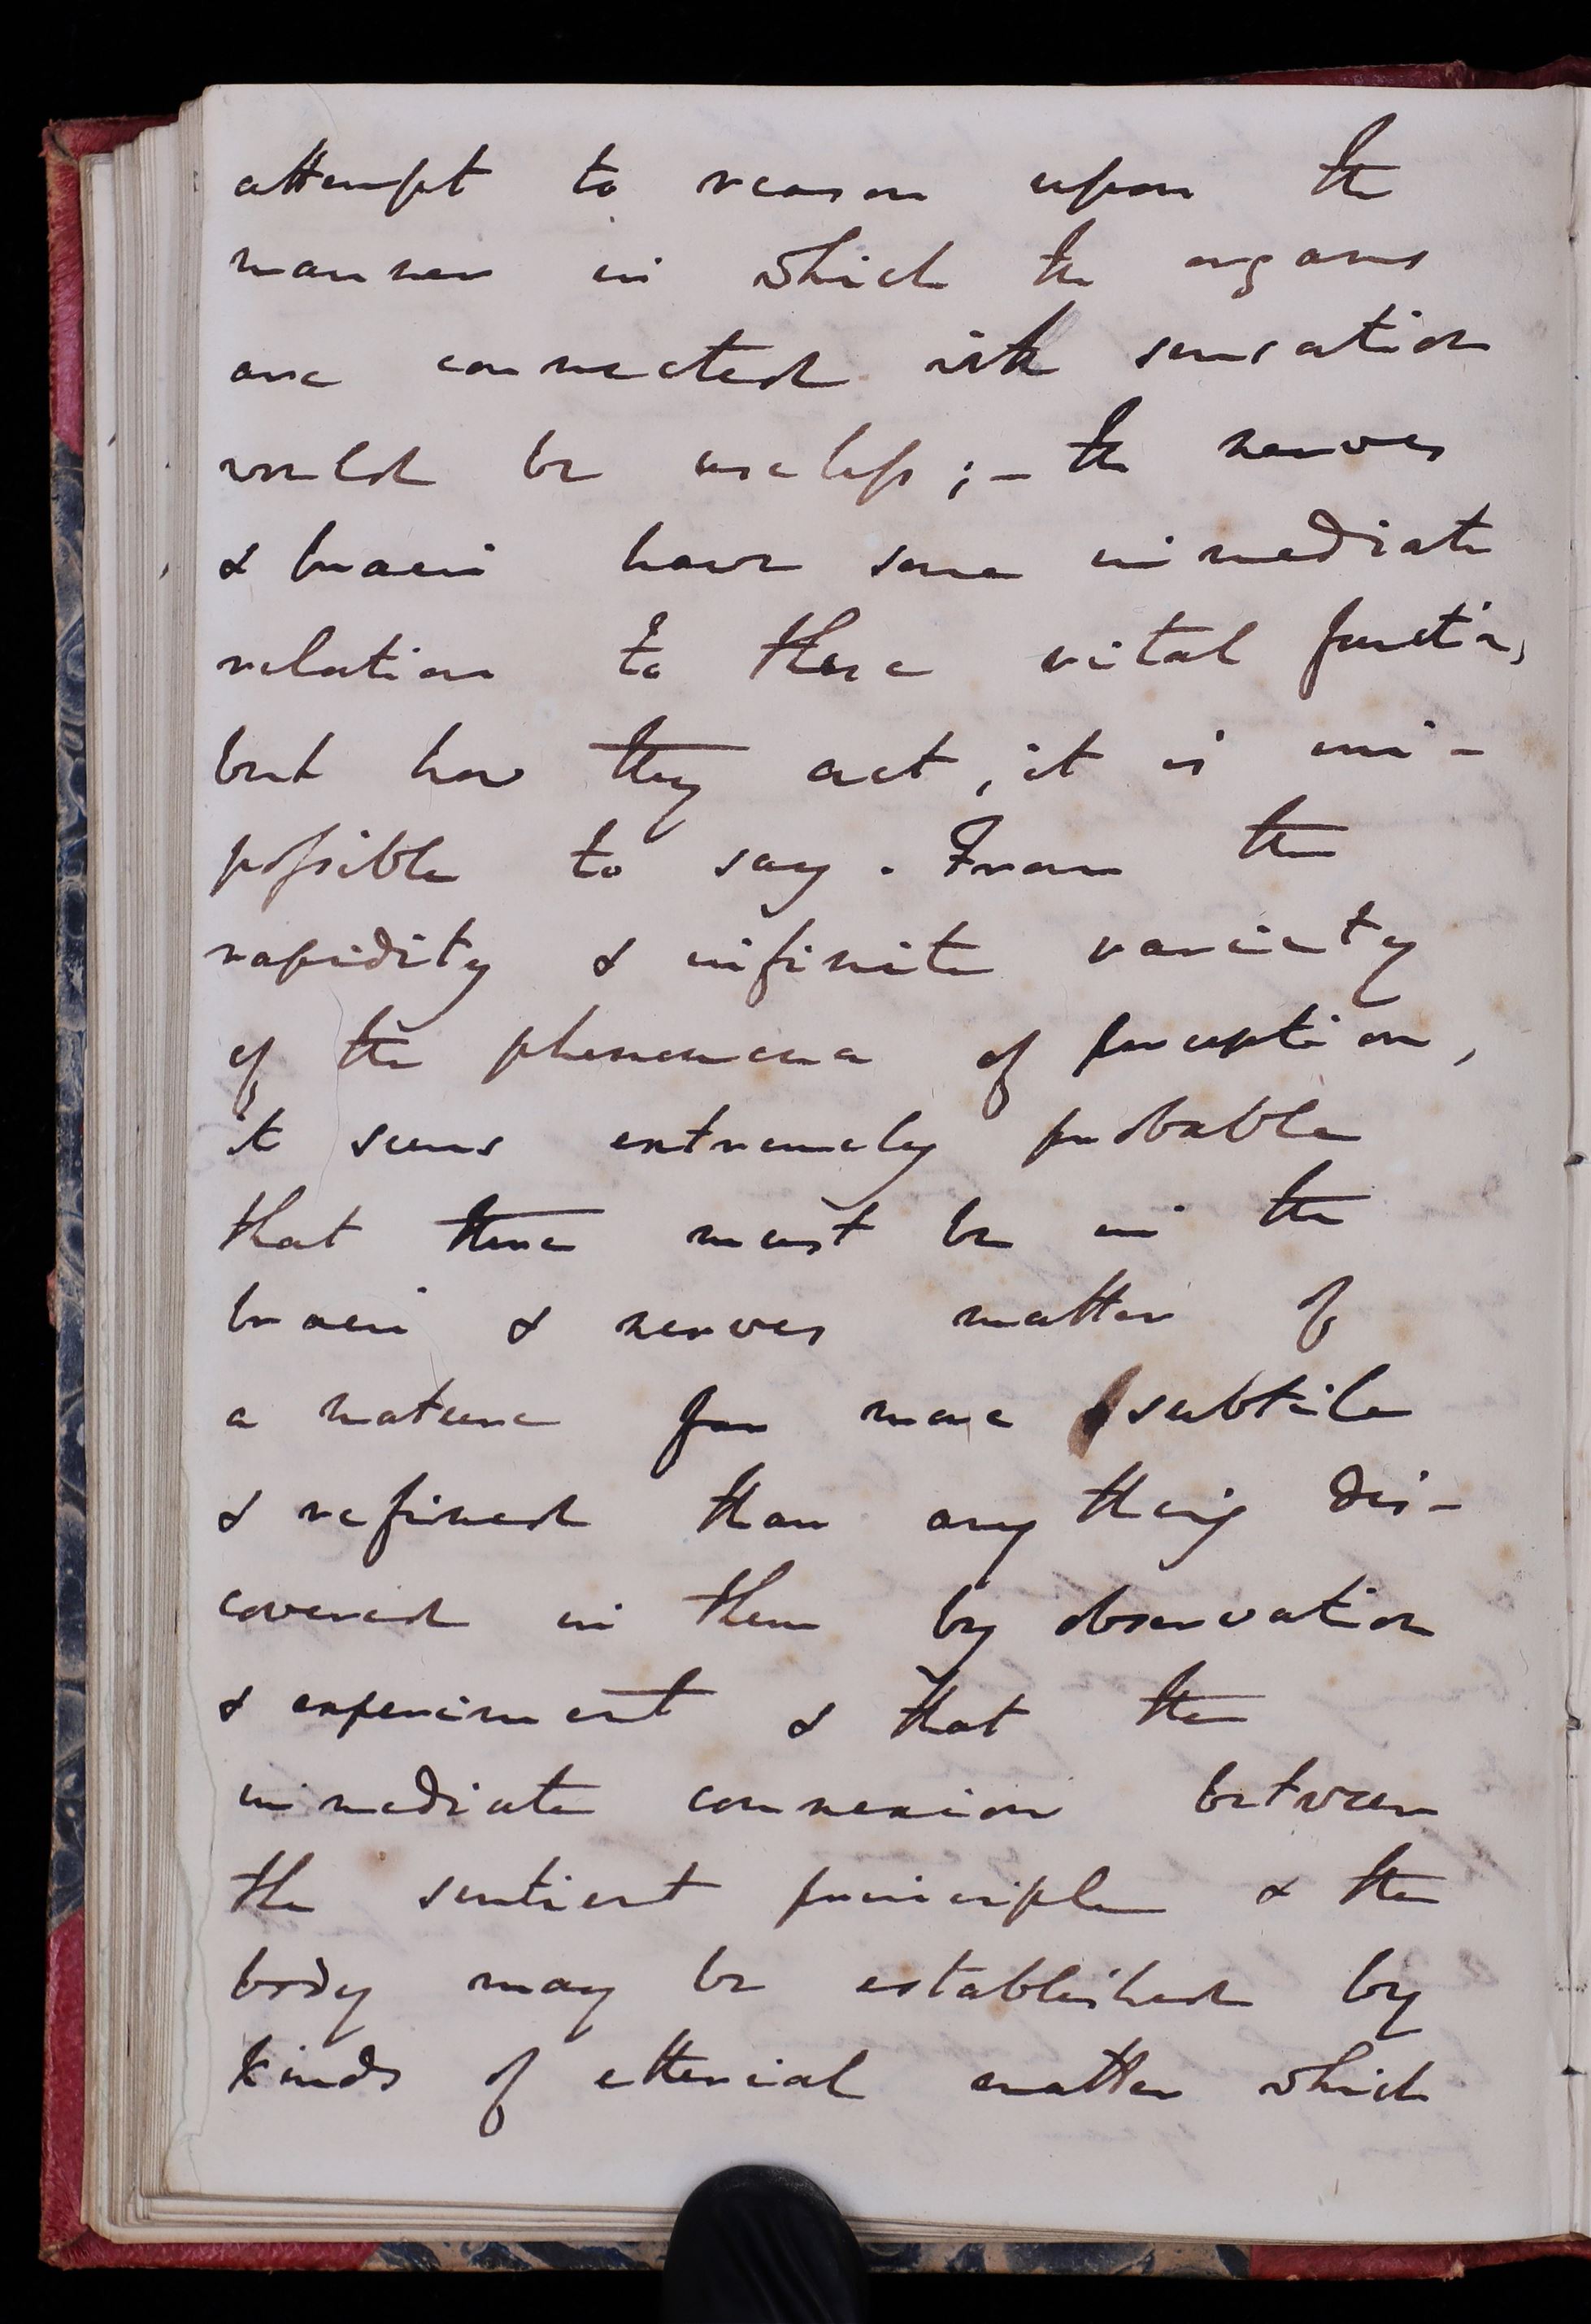 attempt to reason upon the
manner in which the organs
are connected with sensation
would be useless; – the nerves
& brain have some immediate
relation to these vital functions,
but how they act, it is im-
possible to say. From the
rapidity & infinite variety
of the phenomena of perception,
it seems extremely probable
that there must be in the
brain & nerves matter of
a nature far more subtile
& refined than any thing dis-
covered in them by observation
& experiment & that the
immediate connexion between
the sentient principle & the
body may be established by
kinds of etherial matter which